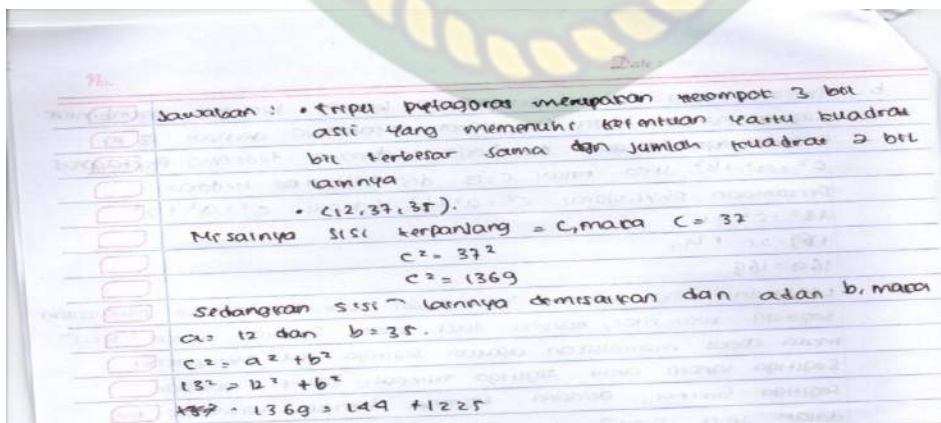 No.
Date :
Jawaban : • tripel pytagoras merupakan kelompok 3 bil
asli yang memenuhi ketentuan yaitu kuadrat
bil terbesar sama dgn jumlah kuadrat 2 bil
lainnya
• (12, 37, 35).
Misalnya sisi terpanjang = C, maka C = 37
c² = 37²
c² = 1369
sedangkan sisi lainnya demisalkan dan adan b, maka
a = 12 dan b = 35.
c² = a² + b²
13² = 12² + b²
1369 = 144 + 1225